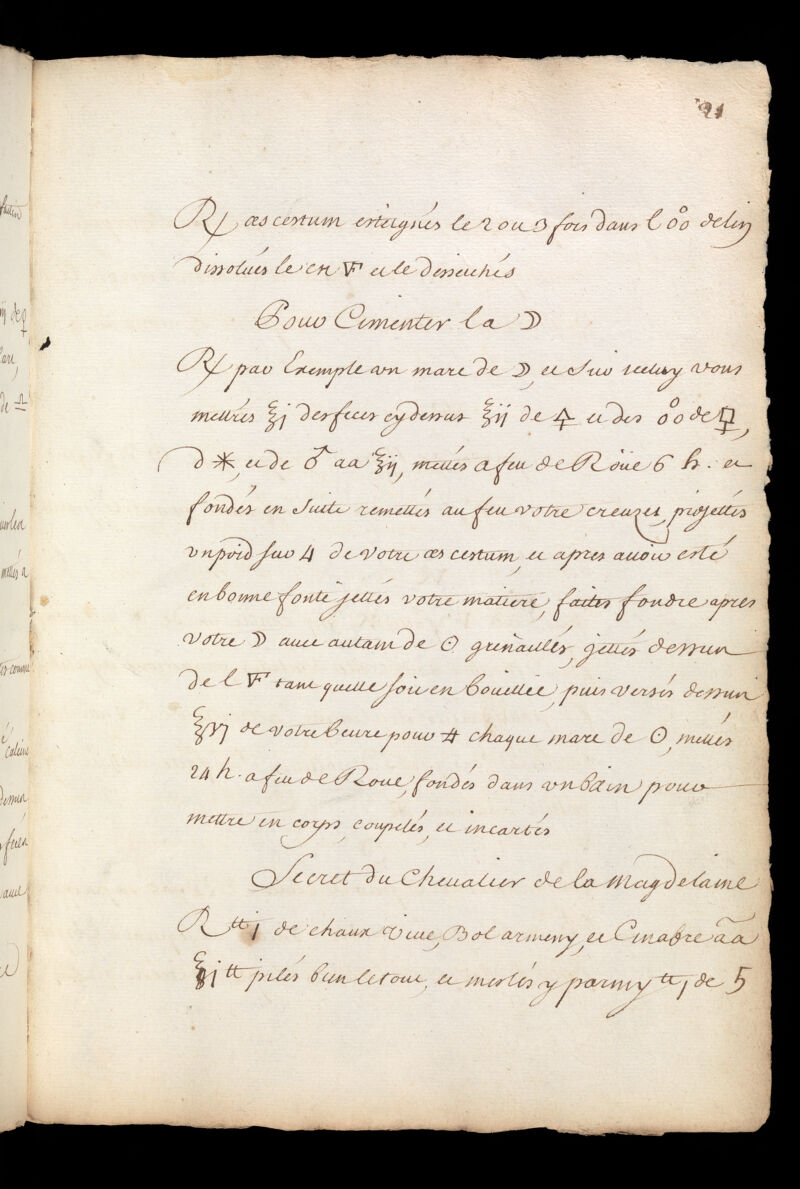 21
℞ æs certum esteignés le 2 ou 3 fois dans l'oo de lin
dissolués le en 🜃 et le desseichés
Pour Cimenter la ☽
℞ par Exemple un marc de ☽, et Sur icelluy vous
mettrés ℥j des feces cy dessus ℥ij de 🜍 et des oo de
d ✳, et de ♂ aa ℥ij, mettés a feu de Roüe 6 h. et
fondés en suite remettés au feu votre creuzet, projettés
un poid sur 4 de votre æs certum, et apres auoir esté
en bonne fonte jettés votre matiere, faites fondre apres
votre ☽ auec autant de ☉ grenaillés, jettés dessus
de l 🜃 tant quelle soit en bouillie, puis versés dessus
℥vj de votre beure pour chaque marc de ☉, mettés
24 h. a feu de Roue, fondés dans un bain pour
mettre en corps, coupelés, et incartés
Secret du Cheualier de la Magdelaine
℞ ℔ j de chaux viue, Bol armeny, et Cinabre aa
℔ pilés bien le tout, et meslés y parmy ℔ j de 5